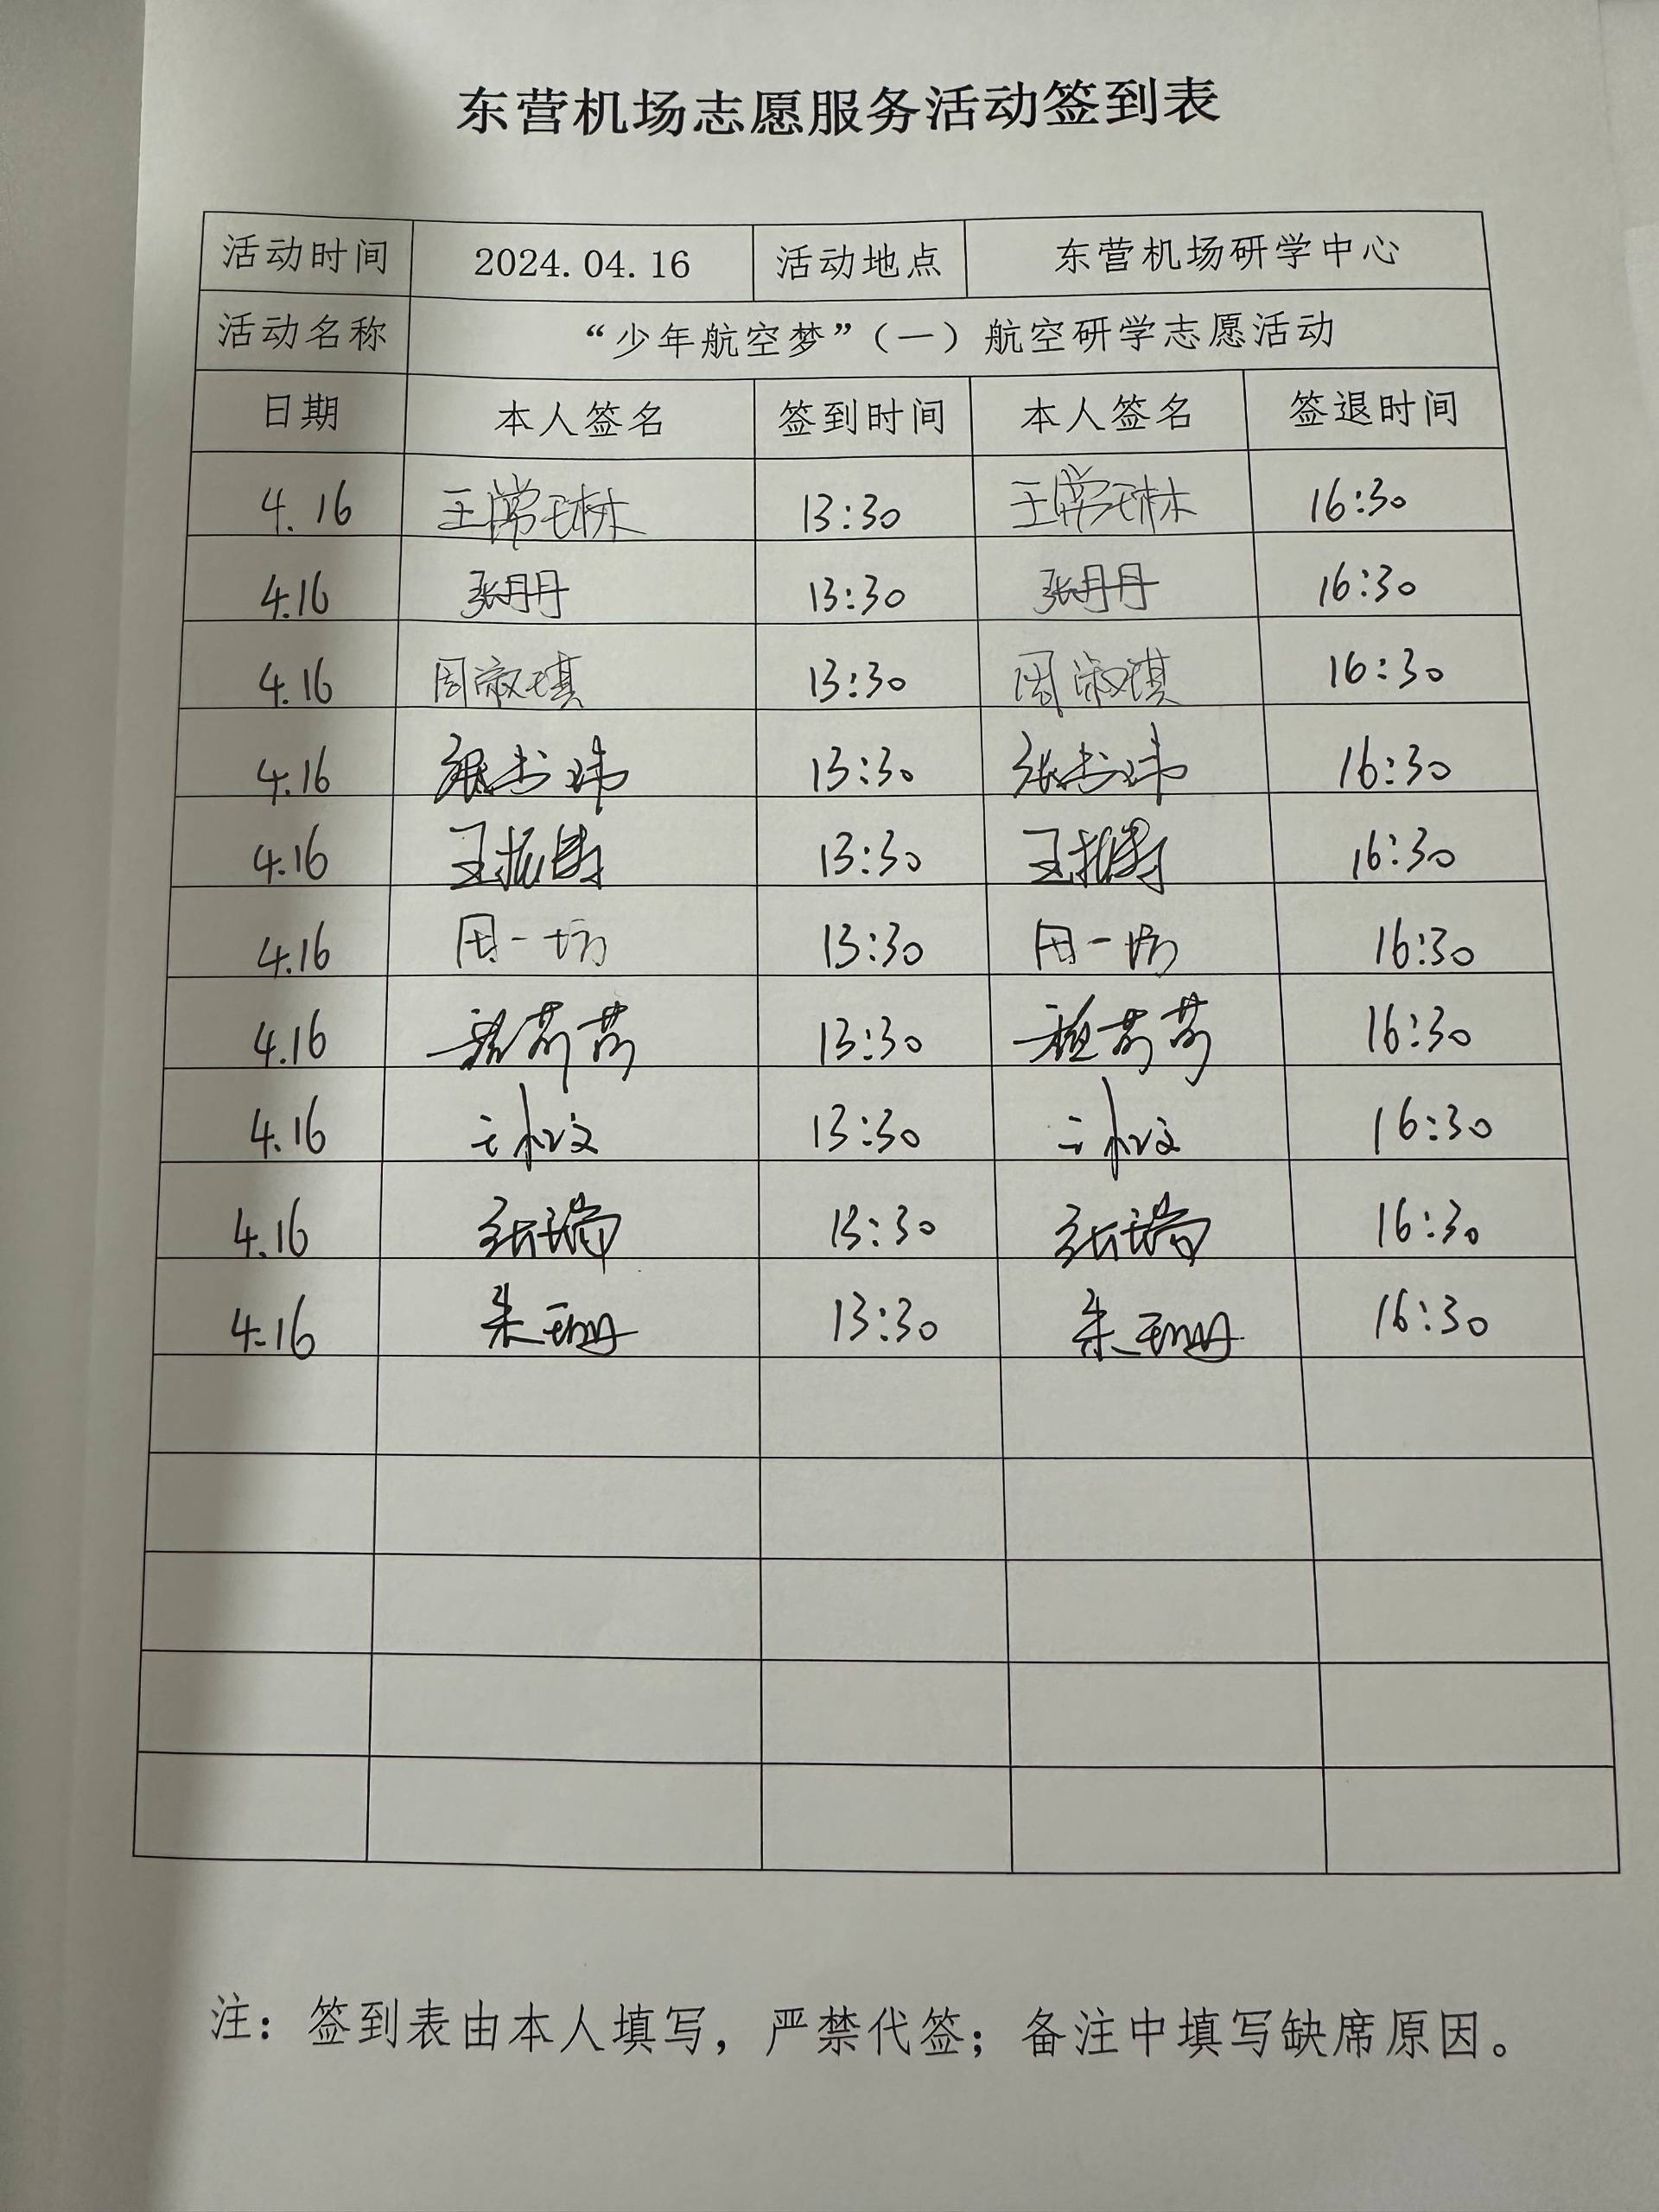 东营机场志愿服务活动签到表
活动时间 2024.04.16 活动地点 东营机场研学中心
活动名称 “少年航空梦”（一）航空研学志愿活动
日期 本人签名 签到时间 本人签名 签退时间
4.16 13:30 16:30
4.16 张丹丹 13:30 张丹丹 16:30
4.16 周淑琪 13:30 周淑琪 16:30
4.16 张书玮 13:30 张书玮 16:30
4.16 王振 13:30 王振 16:30
4.16 周一 13:30 周一 16:30
4.16 13:30 16:30
4.16 13:30 16:30
4.16 张瑞 13:30 张瑞 16:30
4.16 朱珊珊 13:30 朱珊珊 16:30
注：签到表由本人填写，严禁代签；备注中填写缺席原因。